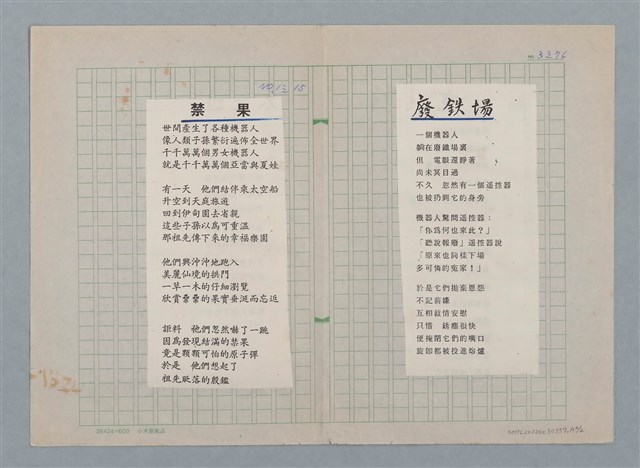 禁果
世間產生了各種機器人
像人類子孫繁衍遍佈全世界
千千萬萬個男女機器人
就是千千萬萬個亞當與夏娃
有一天　他們結伴乘太空船
升空到天庭旅遊
回到伊甸園去省親
這些子孫以為可重溫
那祖先傳下來的幸福樂園
他們興沖沖地跑入
美麗仙境的拱門
一草一木的仔細瀏覽
欣賞纍纍的果實垂涎而忘返
詎料　他們忽然嚇了一跳
因為發現結滿的禁果
竟是顆顆可怕的原子彈
於是　他們想起了
祖先墜落的殷鑑
廢鉄場
一個機器人
躺在廢鐵場裏
但　電眼還睜著
尚未冥目過
不久　忽然有一個遙控器
也被扔到它的身旁
機器人驚問遙控器：
「你為何也來此？」
「聽說報廢」遙控器說
「原來也同樣下場
多可憐的冤家！」
於是它們拋棄恩怨
不記前嫌
互相敍情安慰
只惜　銹塵很快
便掩閉它們的嘴口
旋即都被投進熔爐
25×24=600